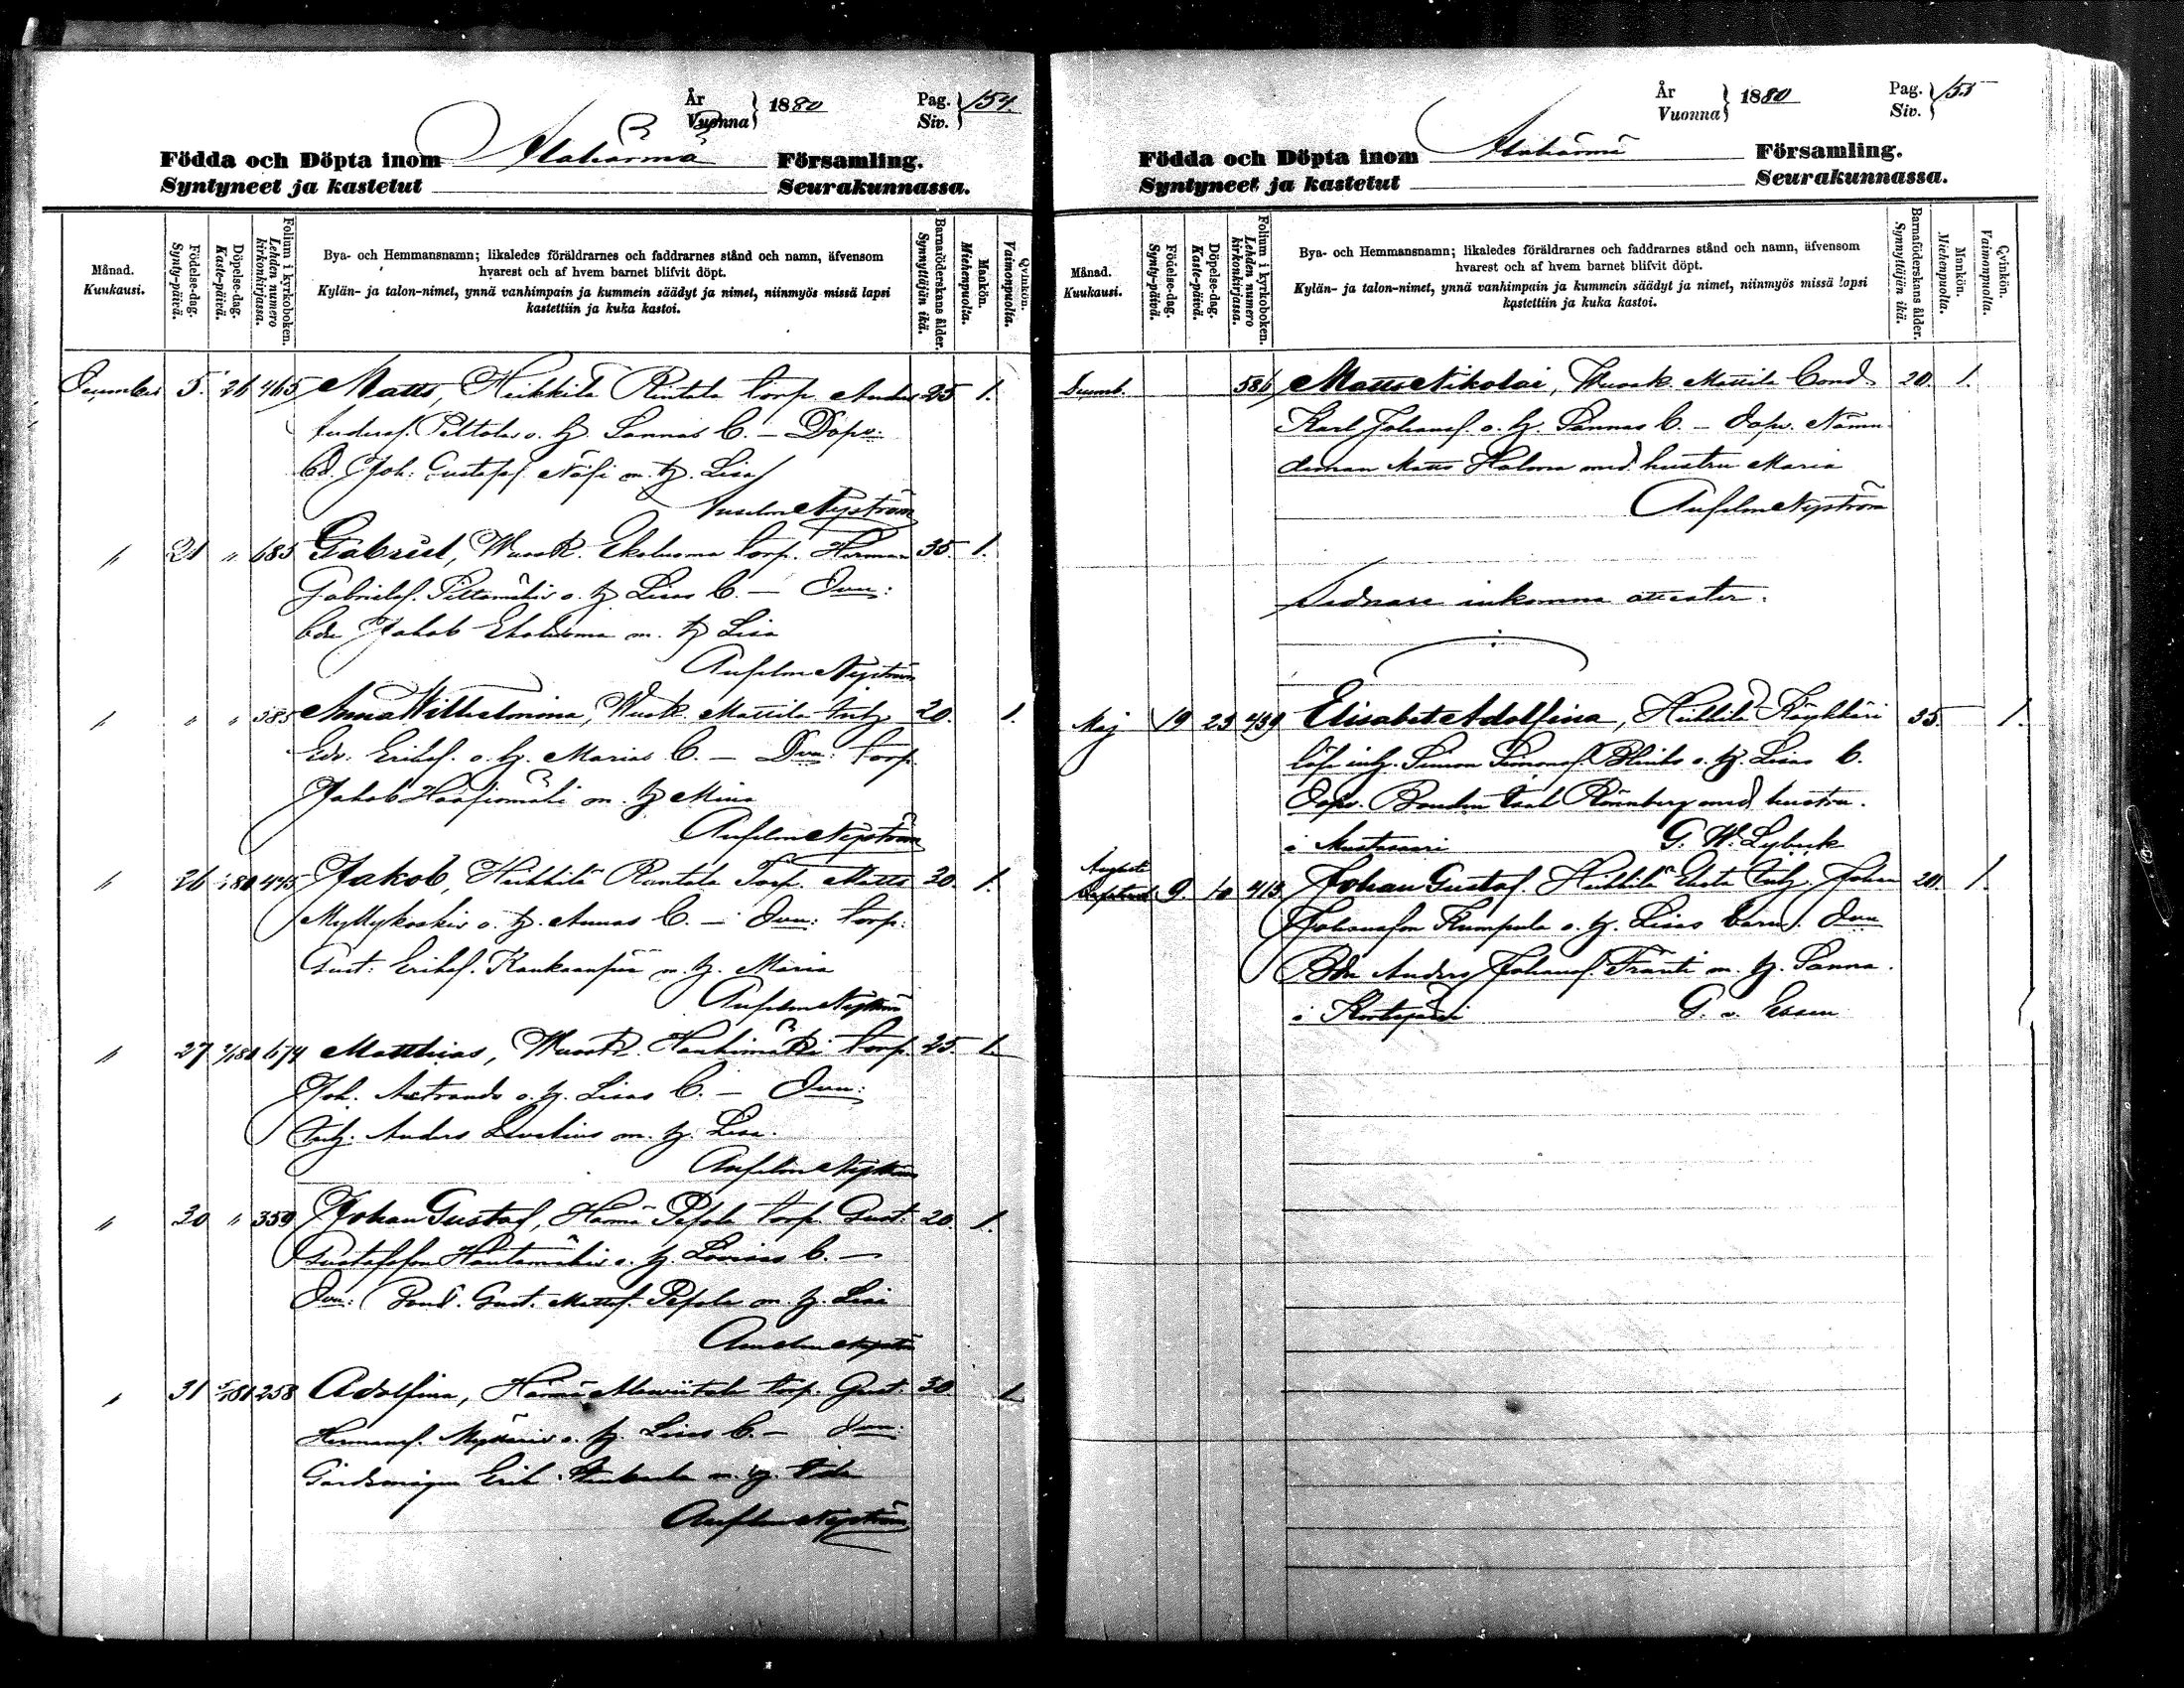 År
Vuonna } 1880
Pag.
Siv. } 154.
Födda och Döpta inom Alahärmä Församling.
Syntyneet ja kastetut Seurakunnassa.
Månad.
Kuukausi.
Födelse-dag.
Synty-päivä.
Döpelse-dag.
Kaste-päivä.
Folium i kyrkoboken.
Lehden numero
kirkonkirjassa.
Bya- och Hemmansnamn; likaledes föräldrarnes och faddrarnes stånd och namn, äfvensom
hvarest och af hvem barnet blifvit döpt.
Kylän- ja talon-nimet, ynnä vanhimpain ja kummein säädyt ja nimet, niinmyös missä lapsi
kastettiin ja kuka kastoi.
Barnaföderskans ålder.
Synnyttäjän ikä.
Mankön.
Miehenpuolta.
Qvinkön.
Vaimonpuolta.
December 5. 26 465 Matts, Heikkilä Rintala torp. Anders 25 1.
Andersf. Peltolas o. h. Sannas b. – Dopv.
bd. Joh. Gustafsf. m. h. Lisa
Anselm Nyström
" 21 " 685 Gabriel, Wuosk. Ekoluoma torp. Herman 35. 1.
Gabrielsf. o. h. Lisas b. – Dvn:
bdn Jakob Ekoluoma m. h Lisa
Anselm Nyström
" " " 585 Anna Wilhelmina, Wuosk. Mattila inh. 20. 1.
Edv. Eriksf. o. h. Marias b. – Dvn: torp.
Jakob m. h Mina
Anselm Nyström
" 26 445 Jakob, Heikkilä Rintala Torp. Matts 30. 1.
Myllykoskis o. h. Annas b. – Dvn: torp:
Gust: Eriksf. Kankaanpää m. h. Maria
Anselm Nyström
" 27 674 Matthias, Wuosk. Hanhimäki torp. 25. 1.
Joh. o. h. Lisas b. – Dvn:
Inh. Anders m. h. Lisa.
Anselm Nyström
" 30 " 359 Johan Gustaf, Härmä Pesola torp. Gust. 20. 1.
Gustafsson Hautamäkis o. h. Lovisas b. –
Dvn: Bond. Gust. Mattsf. Pesola m. h. Lisa
Anselm Nyström
" 31 258 Adolfina, Härmä torp. Gust. 30. 1
Hermansf. o. h. Lisas b. – Dvn:
Erik m. h.
Anselm Nyström
År
Vuonna } 1880
Pag.
Siv. } 155
Födda och Döpta inom Alahärmä Församling.
Syntyneet ja kastetut Seurakunnassa.
Månad.
Kuukausi.
Födelse-dag.
Synty-päivä.
Döpelse-dag.
Kaste-päivä.
Folium i kyrkoboken.
Lehden numero
kirkonkirjassa.
Bya- och Hemmansnamn; likaledes föräldrarnes och faddrarnes stånd och namn, äfvensom
hvarest och af hvem barnet blifvit döpt.
Kylän- ja talon-nimet, ynnä vanhimpain ja kummein säädyt ja nimet, niinmyös missä lapsi
kastettiin ja kuka kastoi.
Barnaföderskans ålder.
Synnyttäjän ikä.
Mankön.
Miehenpuolta.
Qvinkön.
Vaimonpuolta.
Decemb. 586 Matts Nikolai, Wuosk. Mattila bond. 20. 1.
Karl Johansf. o. h. Sannas b. – Dopv. Nämn-
deman Matts Holma med hustru Maria
Anselm Nyström
Sednare inkomna attester.
Maj 19 23 439 Elisabet Adolfina, Heikkilä Köykkäri 35. 1.
inh. Simon Simonsf. o. h. Lisas b.
Dopv. Bonden Rönnberg med hustru.
i Mustasaari G. W. Lybeck
Augusti 9. 10 413 Johan Gustaf. Heikkilä inh. Johan 20. 1.
Johansson Kumpula o. h. Lisas barn. Dvn
Bdn Anders Johansf. m. h. Sanna.
i Kortesjärvi G. v. Essen